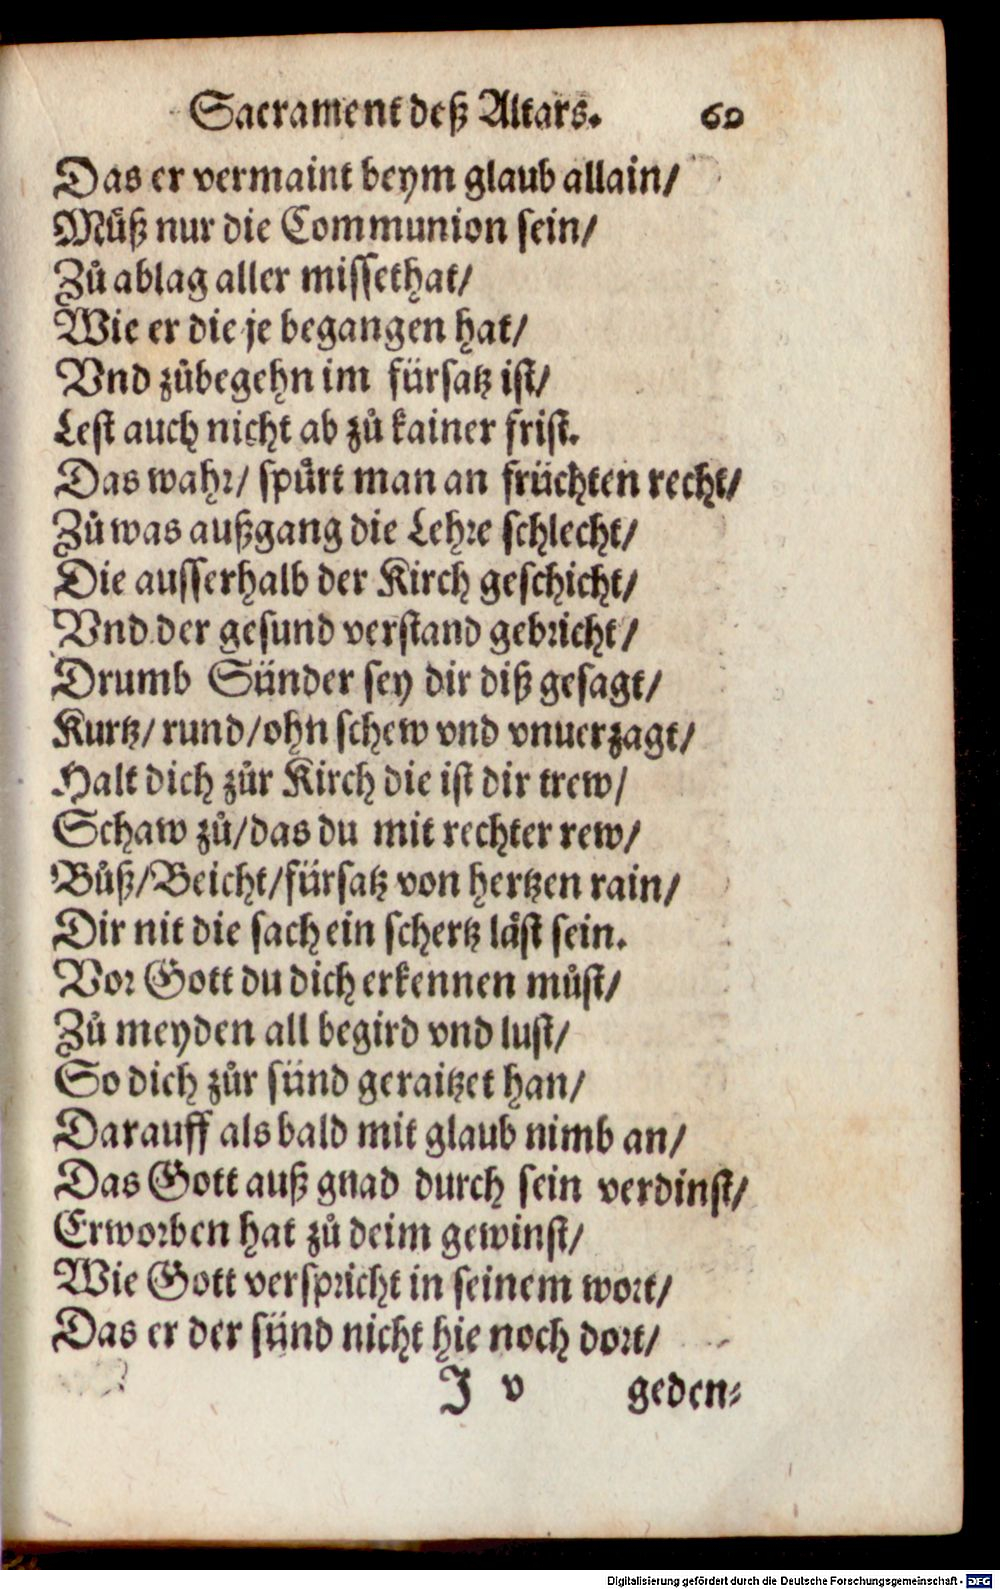 Sacrament deß Altars. 69
Das er vermaint beym glaub allain/
Muͤß nur die Communion sein/
Zuͦ ablag aller missethat/
Wie er die je begangen hat/
Vnd zuͦbegehn im fürsatz ist/
Lest auch nicht ab zuͦ kainer frist.
Das wahr/ spuͤrt man an früchten recht/
Zuͦ was außgang die Lehre schlecht/
Die ausserhalb der Kirch geschicht/
Vnd der gesund verstand gebricht/
Drumb Sünder sey dir diß gesagt/
Kurtz/ rund/ohn schew vnd vnuerzagt/
Halt dich zuͦr Kirch die ist dir trew/
Schaw zuͦ/das du mit rechter rew/
Buͦß/Beicht/fürsatz von hertzen rain/
Dir nit die sach ein schertz laͤst sein.
Vor Gott du dich erkennen muͦst/
Zuͦ meyden all begird vnd lust/
So dich zuͦr sünd geraitzet han/
Darauff als bald mit glaub nimb an/
Das Gott auß gnad durch sein verdinst/
Erworben hat zuͦ deim gewinst/
Wie Gott verspricht in seinem wort/
Das er der sünd nicht hie noch dort/
J v geden-
Digitalisierung gefördert durch die Deutsche Forschungsgemeinschaft - DFG